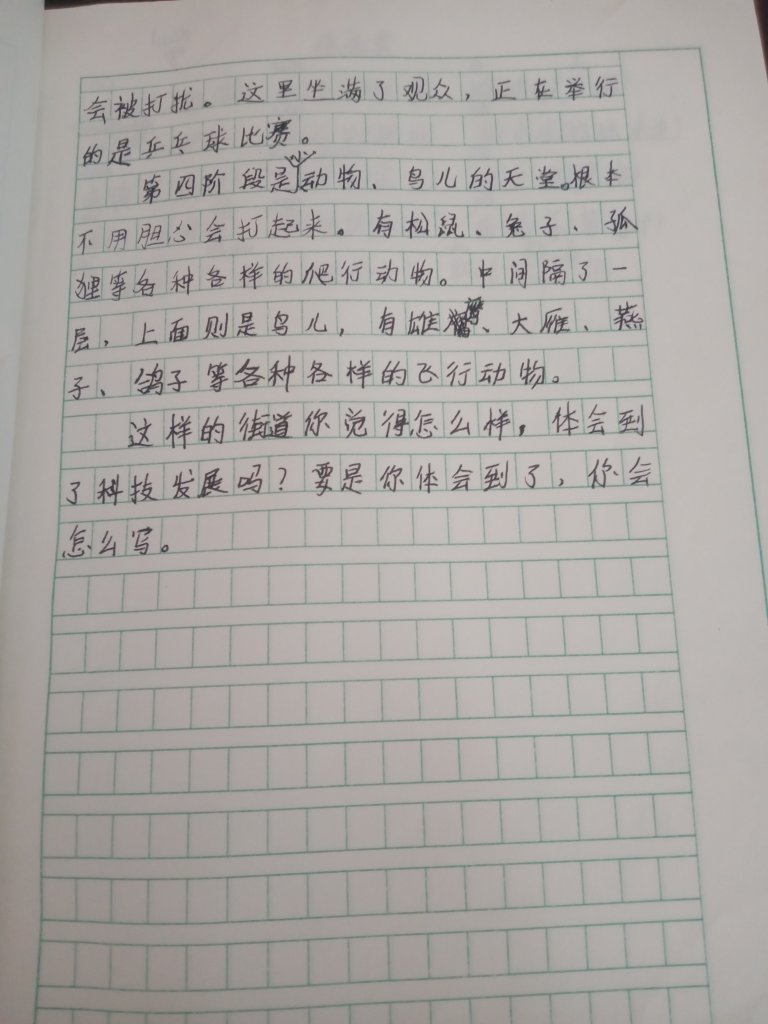 会被打扰。这里坐满了观众，正在举行
的是乒乓球比赛。
第四阶段是小动物、鸟儿的天堂。根本
不用胆心会打起来。有松鼠、兔子、孤
狸等各种各样的爬行动物。中间隔了一
层，上面则是鸟儿，有雄鹰、大雁、燕
子、鸽子等各种各样的飞行动物。
这样的街道你觉得怎么样，体会到
了科技发展吗？要是你体会到了，你会
怎么写。